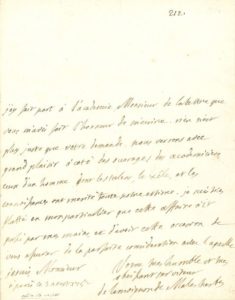 212.
j'ay fait part à l'academie Monsieur de la lettre que
vous m'avés fait l'honneur de m'ecrire. rien n'est
plus juste que votre demande nous verrons avec
grand plaisir à coté des ouvrages des academiciens
ceux d'un homme dont les talens le zele, et les
connoissances ont merité toute notre estime. je suis tres
flatté en mon particulier que cette affaire ait
passé par mes mains et d'avoir cette occasion de
vous assurer de la parfaite consideration avec laquelle
je suis Monsieur
Votre tres humble et tres
obeissant serviteur
à paris ce
de lamoignon de Malesherbes